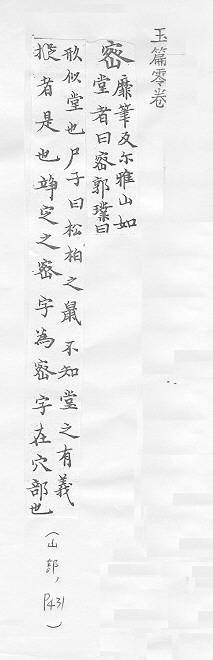 玉篇零卷
密
靡筆反尔雅山如
堂者曰密郭璞曰
形似堂也尸子曰松柏之鼠不知堂之有義
樅者是也竫定之宓字為密字在穴部也
（山部，P431）